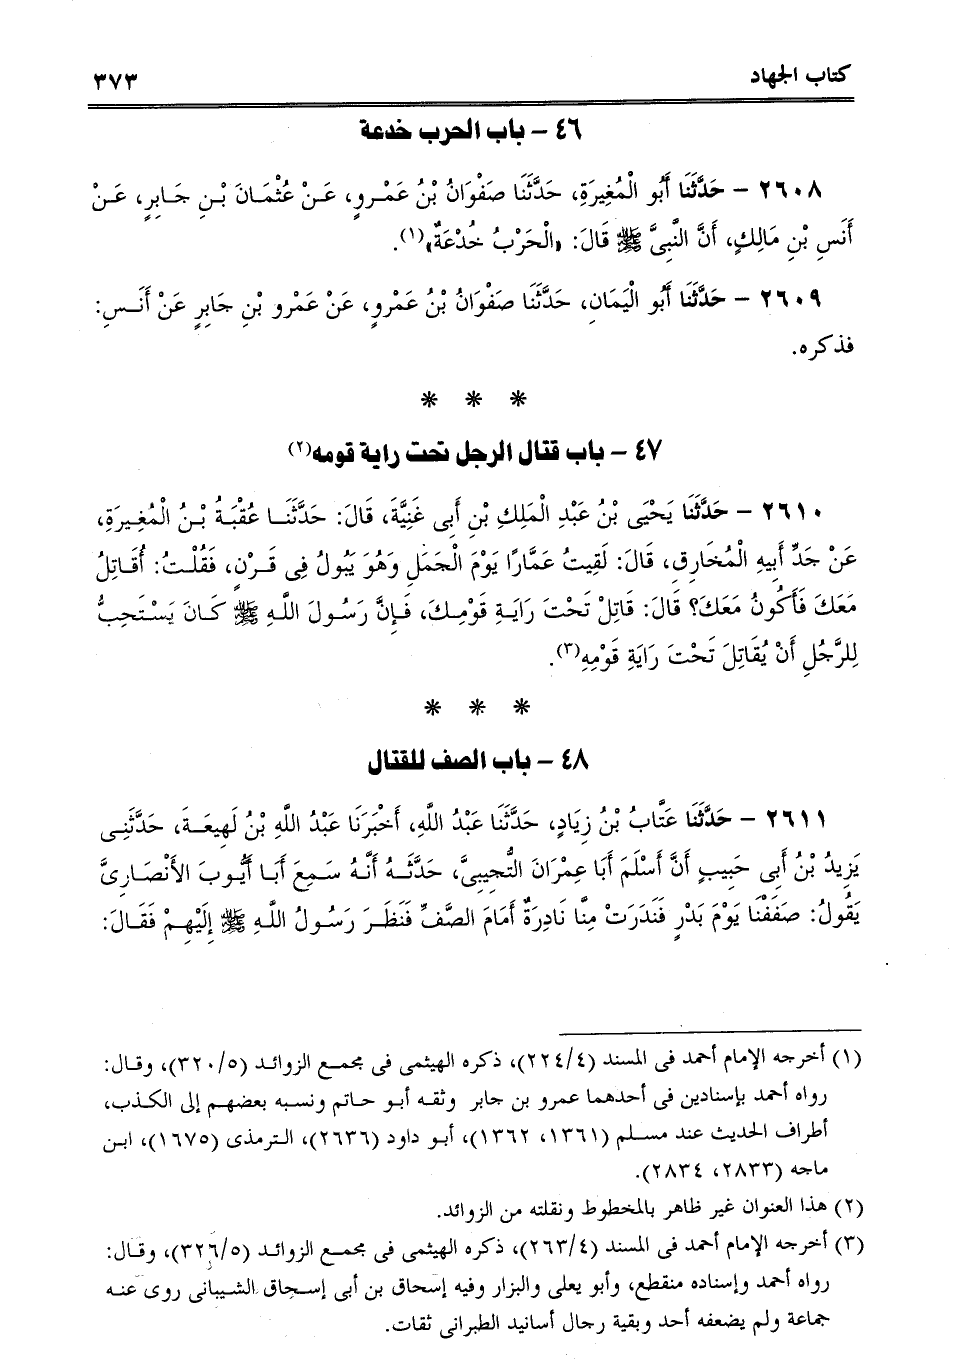 كتاب الجهاد ٣٧٣
٤٦ – باب الحرب خدعة
٢٦٠٨ – حَدَّثَنَا أَبُو الْمُغِيرَةِ، حَدَّثَنَا صَفْوَانُ بْنُ عَمْرٍو، عَنْ عُثْمَانَ بْنِ جَابِرٍ، عَنْ
أَنَسِ بْنِ مَالِكٍ، أَنَّ النَّبِىَّ ﷺ قَالَ: «الْحَرْبُ خُدْعَةٌ»(١).
٢٦٠٩ – حَدَّثَنَا أَبُو الْيَمَانِ، حَدَّثَنَا صَفْوَانُ بْنُ عَمْرٍو، عَنْ عَمْرِو بْنِ جَابِرٍ عَنْ أَنَسٍ:
فذكره.
* * *
٤٧ – باب قتال الرجل تحت راية قومه(٢)
٢٦١٠ – حَدَّثَنَا يَحْيَى بْنُ عَبْدِ الْمَلِكِ بْنِ أَبِى غَنِيَّةَ، قَالَ: حَدَّثَنَا عُقْبَةُ بْنُ الْمُغِيرَةِ،
عَنْ جَدِّ أَبِيهِ الْمُخَارِقِ، قَالَ: لَقِيتُ عَمَّارًا يَوْمَ الْجَمَلِ وَهُوَ يَبُولُ فِى قَرْنٍ، فَقُلْتُ: أُقَاتِلُ
مَعَكَ فَأَكُونُ مَعَكَ؟ قَالَ: قَاتِلْ تَحْتَ رَايَةِ قَوْمِكَ، فَإِنَّ رَسُولَ اللَّهِ ﷺ كَانَ يَسْتَحِبُّ
لِلرَّجُلِ أَنْ يُقَاتِلَ تَحْتَ رَايَةِ قَوْمِهِ(٣).
* * *
٤٨ – باب الصف للقتال
٢٦١١ – حَدَّثَنَا عَتَّابُ بْنُ زِيَادٍ، حَدَّثَنَا عَبْدُ اللَّهِ، أَخْبَرَنَا عَبْدُ اللَّهِ بْنُ لَهِيعَةَ، حَدَّثَنِى
يَزِيدُ بْنُ أَبِى حَبِيبٍ أَنَّ أَسْلَمَ أَبَا عِمْرَانَ التُّجِيبِىَّ، حَدَّثَهُ أَنَّهُ سَمِعَ أَبَا أَيُّوبَ الأَنْصَارِىَّ
يَقُولُ: صَفَفْنَا يَوْمَ بَدْرٍ فَنَدَرَتْ مِنَّا نَادِرَةٌ أَمَامَ الصَّفِّ فَنَظَرَ رَسُولُ اللَّهِ ﷺ إِلَيْهِمْ فَقَالَ:
(١) أخرجه الإمام أحمد فى المسند (٢٢٤/٤)، ذكره الهيثمى فى مجمع الزوائد (٣٢٠/٥)، وقال:
رواه أحمد بإسنادين فى أحدهما عمرو بن جابر وثقه أبو حاتم ونسبه بعضهم إلى الكذب،
أطراف الحديث عند مسلم (١٣٦١، ١٣٦٢)، أبو داود (٢٦٣٦)، الترمذى (١٦٧٥)، ابن
ماجه (٢٨٣٣، ٢٨٣٤).
(٢) هذا العنوان غير ظاهر بالمخطوط ونقلته من الزوائد.
(٣) أخرجه الإمام أحمد فى المسند (٢٦٣/٤)، ذكره الهيثمى فى مجمع الزوائد (٣٢٦/٥)، وقال:
رواه أحمد وإسناده منقطع، وأبو يعلى والبزار وفيه إسحاق بن أبى إسحاق الشيبانى روى عنه
جماعة ولم يضعفه أحد وبقية رجال أسانيد الطبرانى ثقات.